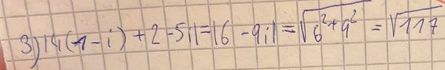 3) |4(1-i) + 2 - 5i| = |6 - 9i| = √6²+9² = √117